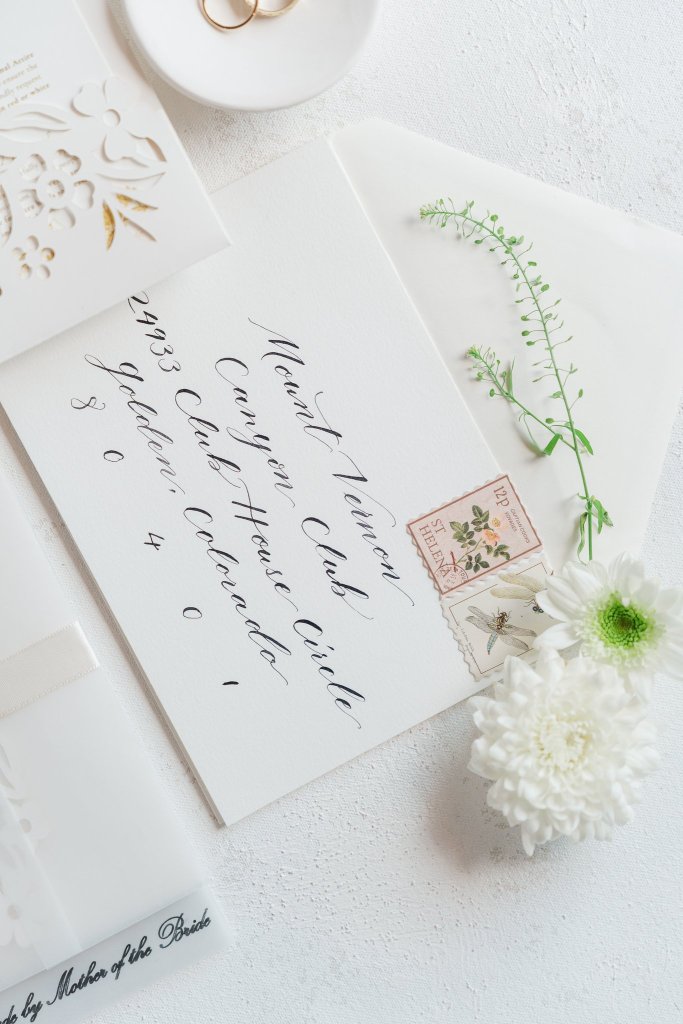 Mount Vernon
Canyon Club
24933 Club House Circle
golden, Colorado
8 0 4 0 1
12p
ST
HELENA
ensure the
red or white
by Mother of the Bride